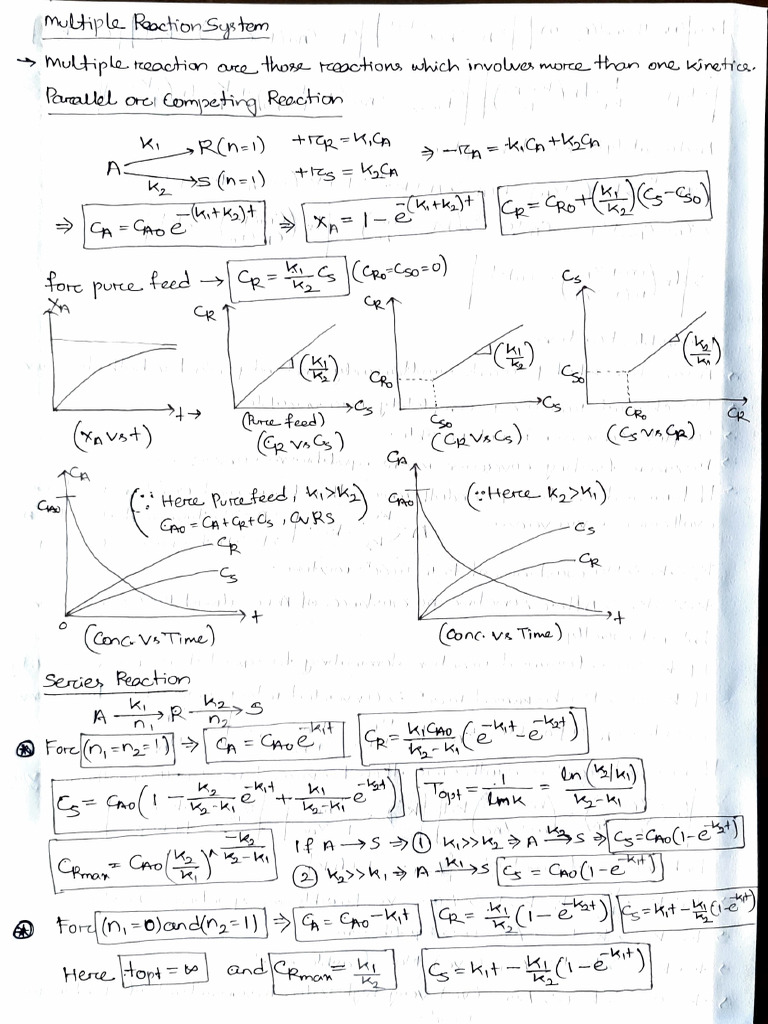 Multiple Reaction System
→ Multiple reaction are those reactions which involves more than one kinetics.
Parallel or Competing Reaction
A →(k₁) R (n=1)   +r_R = k₁C_A   ⇒ -r_A = k₁C_A + k₂C_A
A →(k₂) S (n=1)   +r_S = k₂C_A
⇒ C_A = C_A0 e^-(k₁+k₂)t   ⇒ X_A = 1 - e^-(k₁+k₂)t   C_R = C_R0 + (k₁/k₂)(C_S - C_S0)
for pure feed → C_R = k₁/k₂ C_S   (C_R0 = C_S0 = 0)
X_A   C_R   C_R   C_S
(k₁/k₂)   (k₁/k₂)   (k₂/k₁)
C_R0   C_S0
t →   C_S   C_S0   C_S   C_R0   C_R
(X_A vs t)   (Pure feed)   (C_R vs C_S)   (C_R vs C_S)   (C_S vs C_R)
C_A   C_A
C_A0   (∵ Here Pure feed, k₁>k₂)   C_A0   (∵ Here k₂>k₁)
C_A0 = C_A + C_R + C_S,
C_R   C_S
C_S   C_R
0   t   t
(Conc. vs Time)   (Conc. vs Time)
Series Reaction
A →(k₁, n₁) R →(k₂, n₂) S
For (n₁=n₂=1) ⇒ C_A = C_A0 e^-k₁t   C_R = k₁C_A0/(k₂-k₁) (e^-k₁t - e^-k₂t)
C_S = C_A0 (1 - k₂/(k₂-k₁) e^-k₁t + k₁/(k₂-k₁) e^-k₂t)   T_opt = 1/lmk = ln(k₂/k₁)/(k₂-k₁)
C_Rmax = C_A0 (k₂/k₁)^ -k₂/(k₂-k₁)   If A → S ⇒ ① k₁>>k₂ ⇒ A →(k₂) S ⇒ C_S = C_A0(1-e^-k₂t)
② k₂>>k₁ ⇒ A →(k₁) S   C_S = C_A0(1-e^-k₁t)
For (n₁=0) and (n₂=1) ⇒ C_A = C_A0 - k₁t   C_R = k₁/k₂ (1-e^-k₂t)   C_S = k₁t - k₁/k₂ (1-e^-k₁t)
Here t_opt = ∞ and C_Rmax = k₁/k₂   C_S = k₁t - k₁/k₂ (1-e^-k₁t)